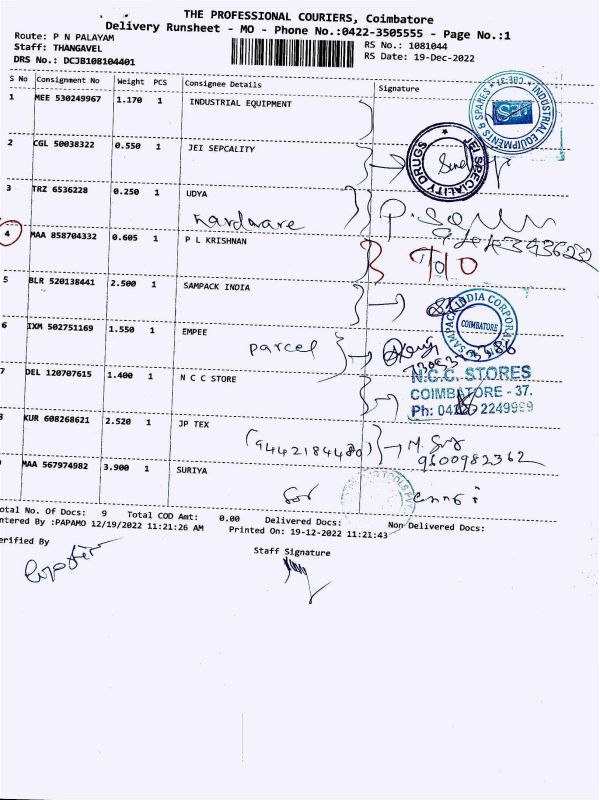 THE PROFESSIONAL COURIERS, Coimbatore
Delivery Runsheet - MO - Phone No.:0422-3505555 - Page No.:1
Route: P N PALAYAM
RS No.: 1081044
Staff: THANGAVEL
RS Date: 19-Dec-2022
DRS No.: DCJB108104401
S No Consignment No Weight PCS Consignee Details Signature
1 MEE 530249967 1.170 1 INDUSTRIAL EQUIPMENT
INDUSTRIAL EQUIPMENTS & SPARES CBE-37
2 CGL 50038322 0.550 1 JEI SEPCALITY
JEI SPECIALITY DRUGS
3 TRZ 6536228 0.250 1 UDYA
Hardware
4 MAA 858704332 0.605 1 P L KRISHNAN
5 BLR 520138441 2.500 1 SAMPACK INDIA
SAMPACK INDIA CORPORA
COIMBATORE
6 IXM 502751169 1.550 1 EMPEE
parcel
7 DEL 120707615 1.400 1 N C C STORE
N.C.C. STORES
COIMBATORE - 37.
Ph: 0422 2249999
KUR 608268621 2.520 1 JP TEX
(9442184480) M.
9600982362
MAA 567974982 3.900 1 SURIYA
otal No. Of Docs: 9 Total COD Amt: 0.00 Delivered Docs: Non Delivered Docs:
ntered By :PAPAMO 12/19/2022 11:21:26 AM Printed On: 19-12-2022 11:21:43
erified By
Staff Signature